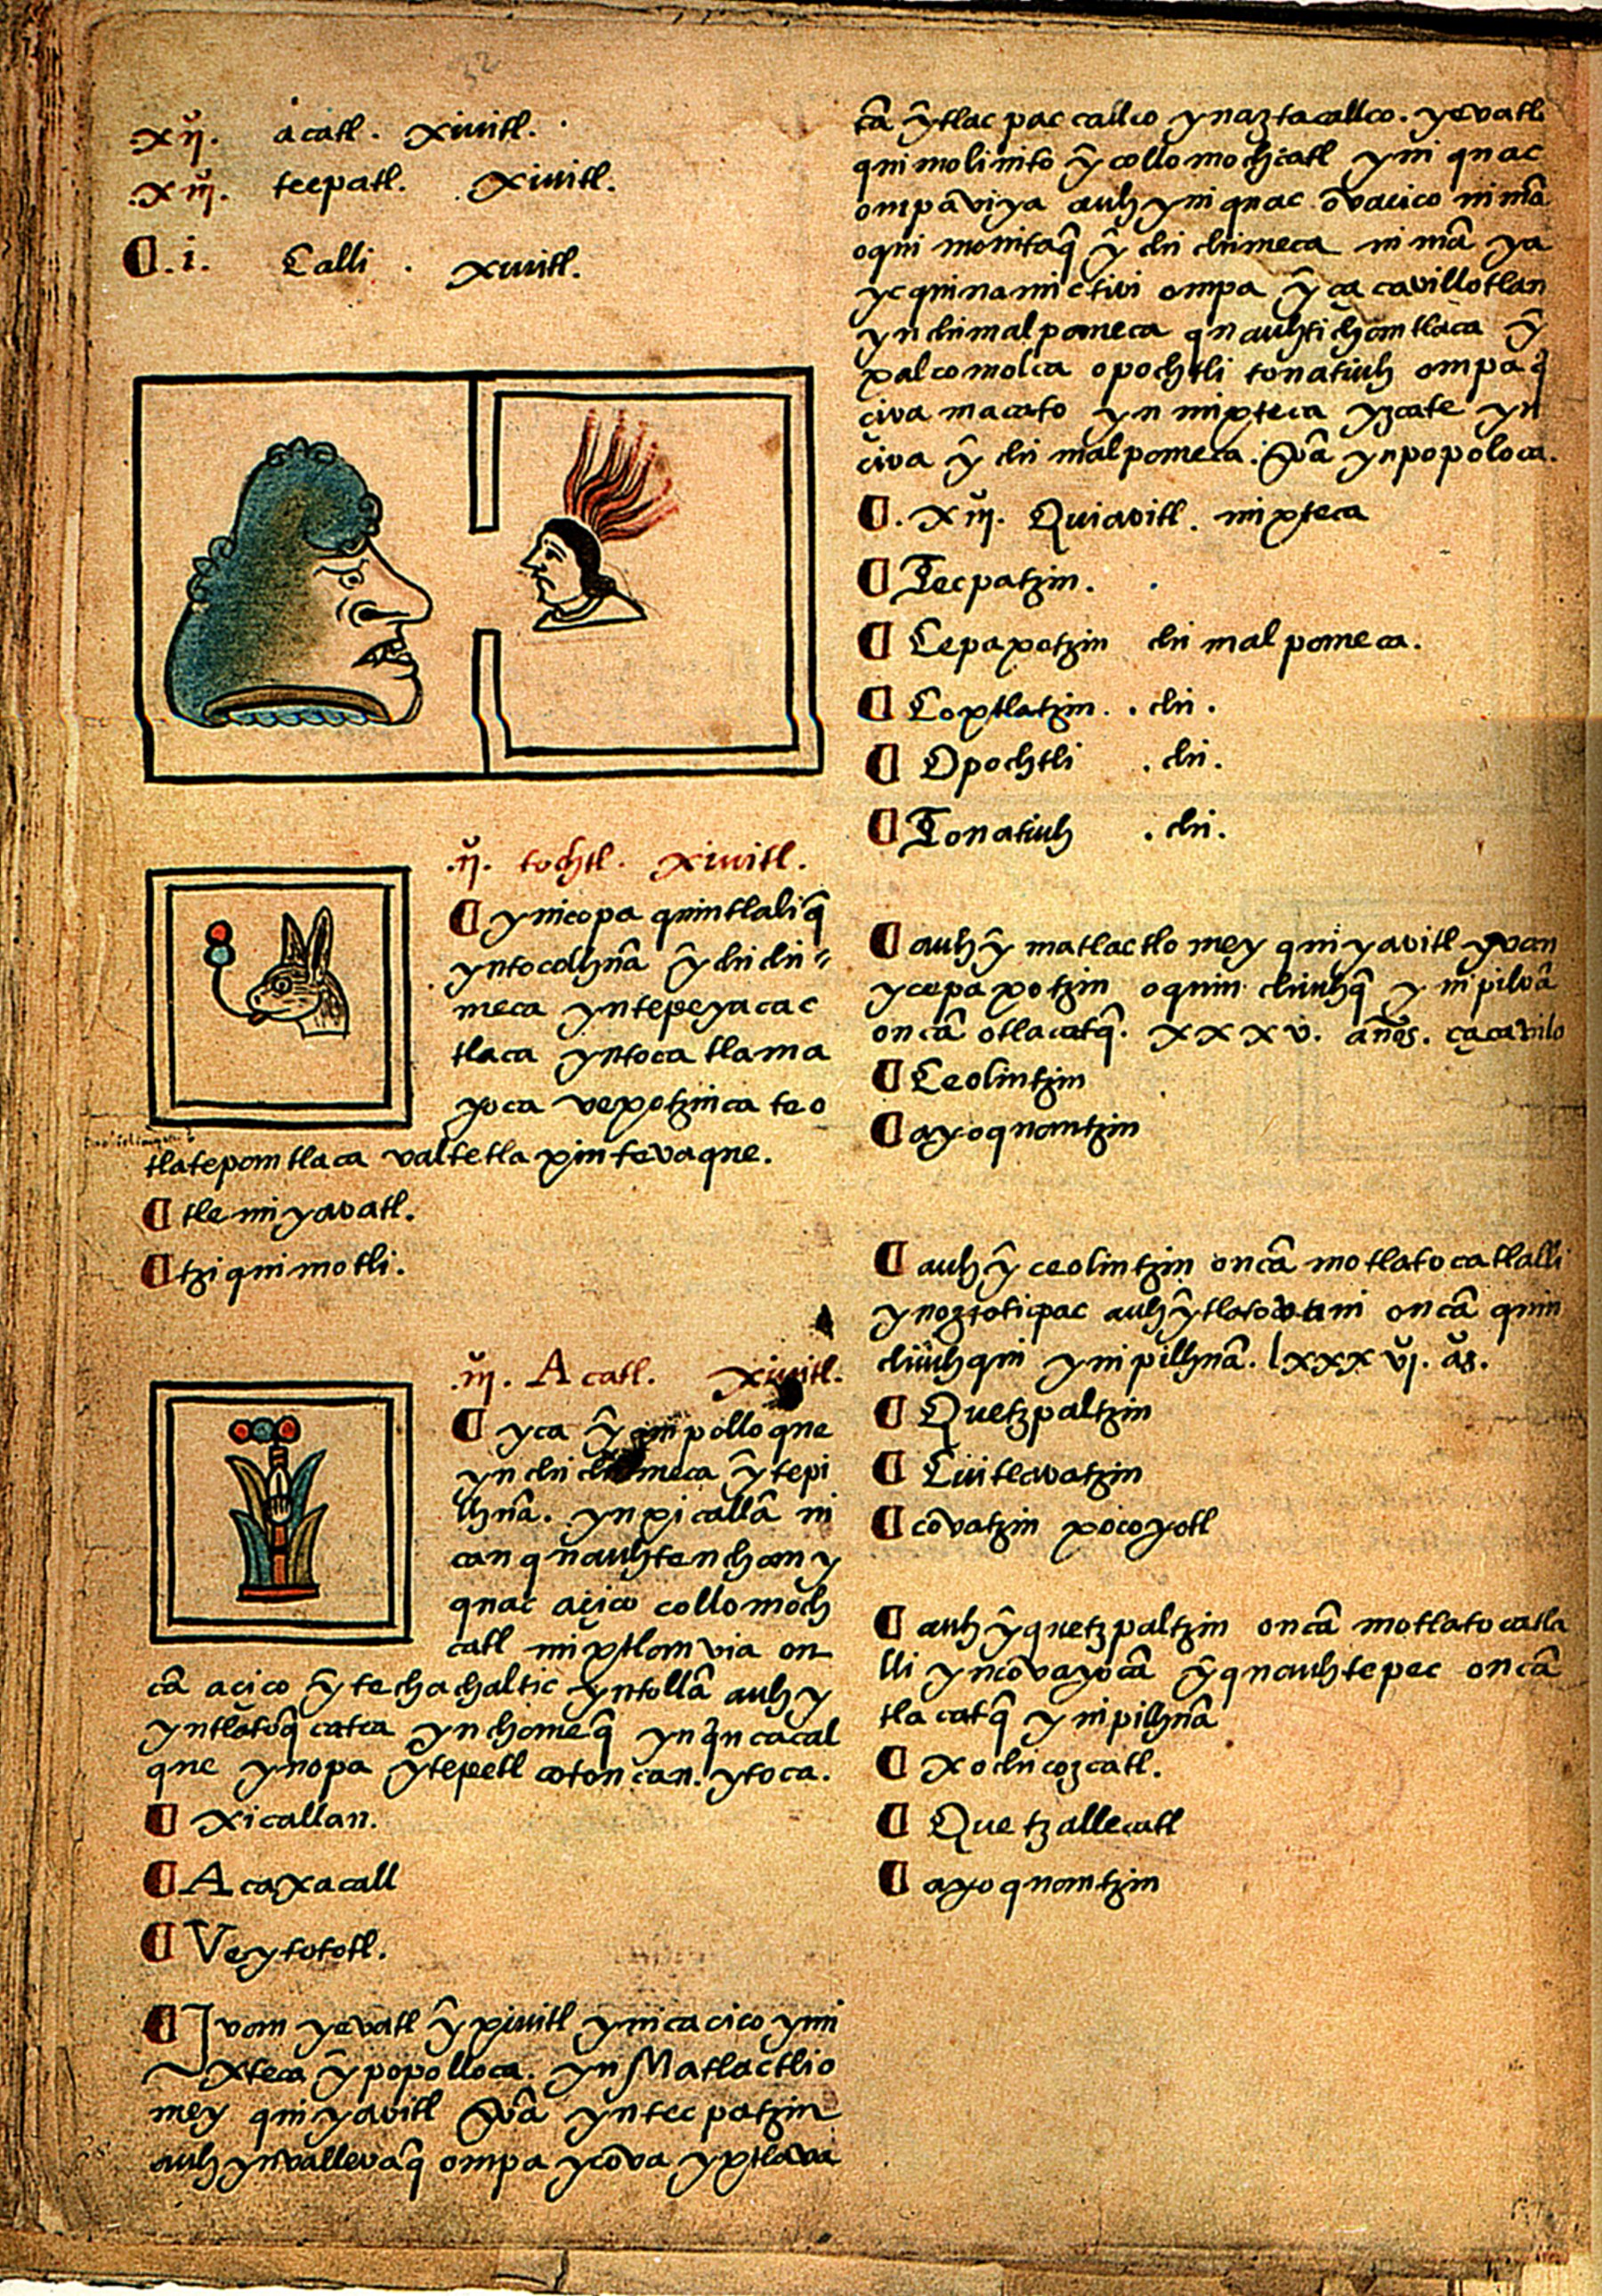 .xij. acatl. xiuitl.
.xiij. tecpatl. xiuitl.
.i. Calli . xiuitl.
.ij. tochtl. xiuitl.
ynicopa quintlaliq̃
yntocolhuã ỹ chichi=
meca yntepeyacac
tlaca yntoca tlama
yoca vexotzinca teo
tlatepantlaca valtetlaxintevaque.
tlemiyavatl.
tziquimotli.
.iij. Acatl. xiuitl.
yca ỹ quipolloque
yn chichimeca ỹtepi
lhuã. ynxicallã ni
can quauhtenchan y
quac açico collomoch
catl mixtlanvia on
cã açico ỹtechachaltic yntollã auh y
yntlatoq̃ catca ynchomeq̃ ynq̃ncacal
que ynopa ỹtepetl cotoncan. ytoca.
xicallan.
Acaxacall
Veytototl.
Jvan yevatl ỹxiuitl ynicacico ymi
xteca ỹpopolloca. ynMatlactlio
mey quiyavitl yvã yntecpatzin
auh ynvallevaq̃ ompa ycõva yxtlava
cã ỹtlacpac callco ynaztacallco. yevatl
quimolinito ỹ collomochcatl yniquac
ompãviya auh yniquac õvacico nimã
oquimonitaq̃ ỹ chichimeca nimã ya
ycquinamictivi ompa ỹ çacavillotlan
ynchimalpaneca quauhtichantlaca ỹ
xalcomolca opochtli tonatiuh ompa q̃
çiva macato yn mixteca yzcate yn
çiva ỹ chimalpaneca. yvã ynpopoloca.
.xiij. Quiavitl. mixteca
Tecpatzin.
Cepaxotzin chimalpaneca.
Coxtlatzin. . chi.
Opochtli . chi.
Tonatiuh . chi.
auhỹ matlactlomey quiyavitl yvan
ycepaxotzin oquinchiuhq̃ y nipilvã
oncã otlacatq̃. xxxv. años. çacavilo
Ceolintzin
ayoquantzin
auhỹ ceolintzin oncã motlatocatlalli
ynoztoticpac auhỹtlatovani oncã quin
chiuhqui ynipilhuã. lxxxvj. ãs.
Quetzpaltzin
Cuitlavatzin
cõvatzin xocoyotl
auhỹquetzpaltzin oncã motlatocatla
lli yncõvayocã ỹquauhtepec oncã
tlacatq̃ ynipilhuã
xochicozcatl.
Quetzallecatl
ayoquantzin